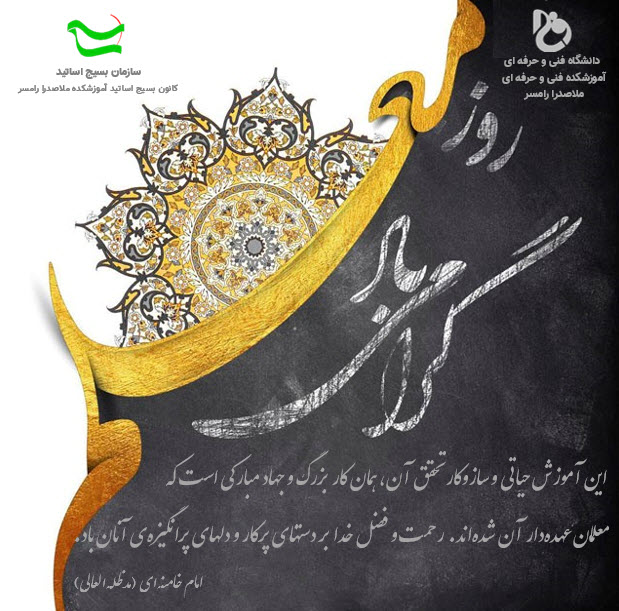 سازمان بسیج اساتید
کانون بسیج اساتید آموزشکده ملاصدرا رامسر
دانشگاه فنی و حرفه ای
آموزشکده فنی و حرفه ای
ملاصدرا رامسر
روز
معلم
گرامی باد
این آموزش حیاتی و سازوکار تحقق آن، همان کار بزرگ و جهاد مبارکی است که
معلمان عهده‌دار آن شده‌اند. رحمت و فضل خدا بر دستهای پرکار و دلهای پرانگیزه‌ی آنان باد.
امام خامنه ای (مدظله العالی)